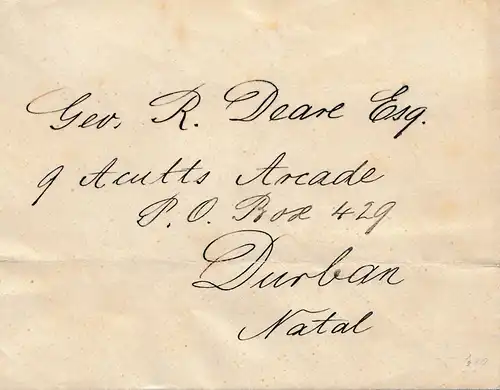 Geo. R. Deare Esq.
9 Acutts Arcade
P. O. Box 429
Durban
Natal